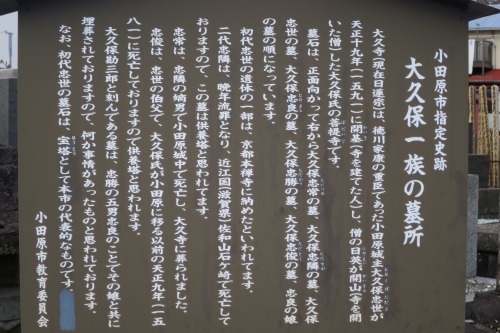 小田原市指定史跡
大久保一族の墓所
大久寺(現在日蓮宗)は、徳川家康の重臣であった小田原城主大久保忠世が
天正十九年(一五九一)に開基(寺を建てた人)し、僧の日英が開山(寺を開
いた僧)した大久保氏の菩提寺です。
墓石は、正面向かって右から大久保忠常の墓、大久保忠隣の墓、大久保
忠世の墓、大久保忠良の墓、大久保忠勝の墓、大久保忠俊の墓、忠良の娘
の墓の順になっています。
初代忠世の遺体の一部は、京都本禅寺に納めたといわれてます。
二代忠隣は、晩年流罪となり、近江国(滋賀県)佐和山石ケ崎で死亡して
おりますので、この墓は供養塔と思われます。
忠常は、忠隣の嫡男で小田原城中で死亡し、大久寺に葬られました。
忠俊は、忠世の伯父で、大久保氏が小田原に移る以前の天正九年(一五
八一)に死亡しておりますので供養塔と思われます。
大久保勘三郎と刻んである墓は、忠勝の五男忠良のことでその娘と共に
埋葬されておりますので、何か事情があったものと思われております。
なお、初代忠世の墓石は、宝塔として本市の代表的なものです。
小田原市教育委員会